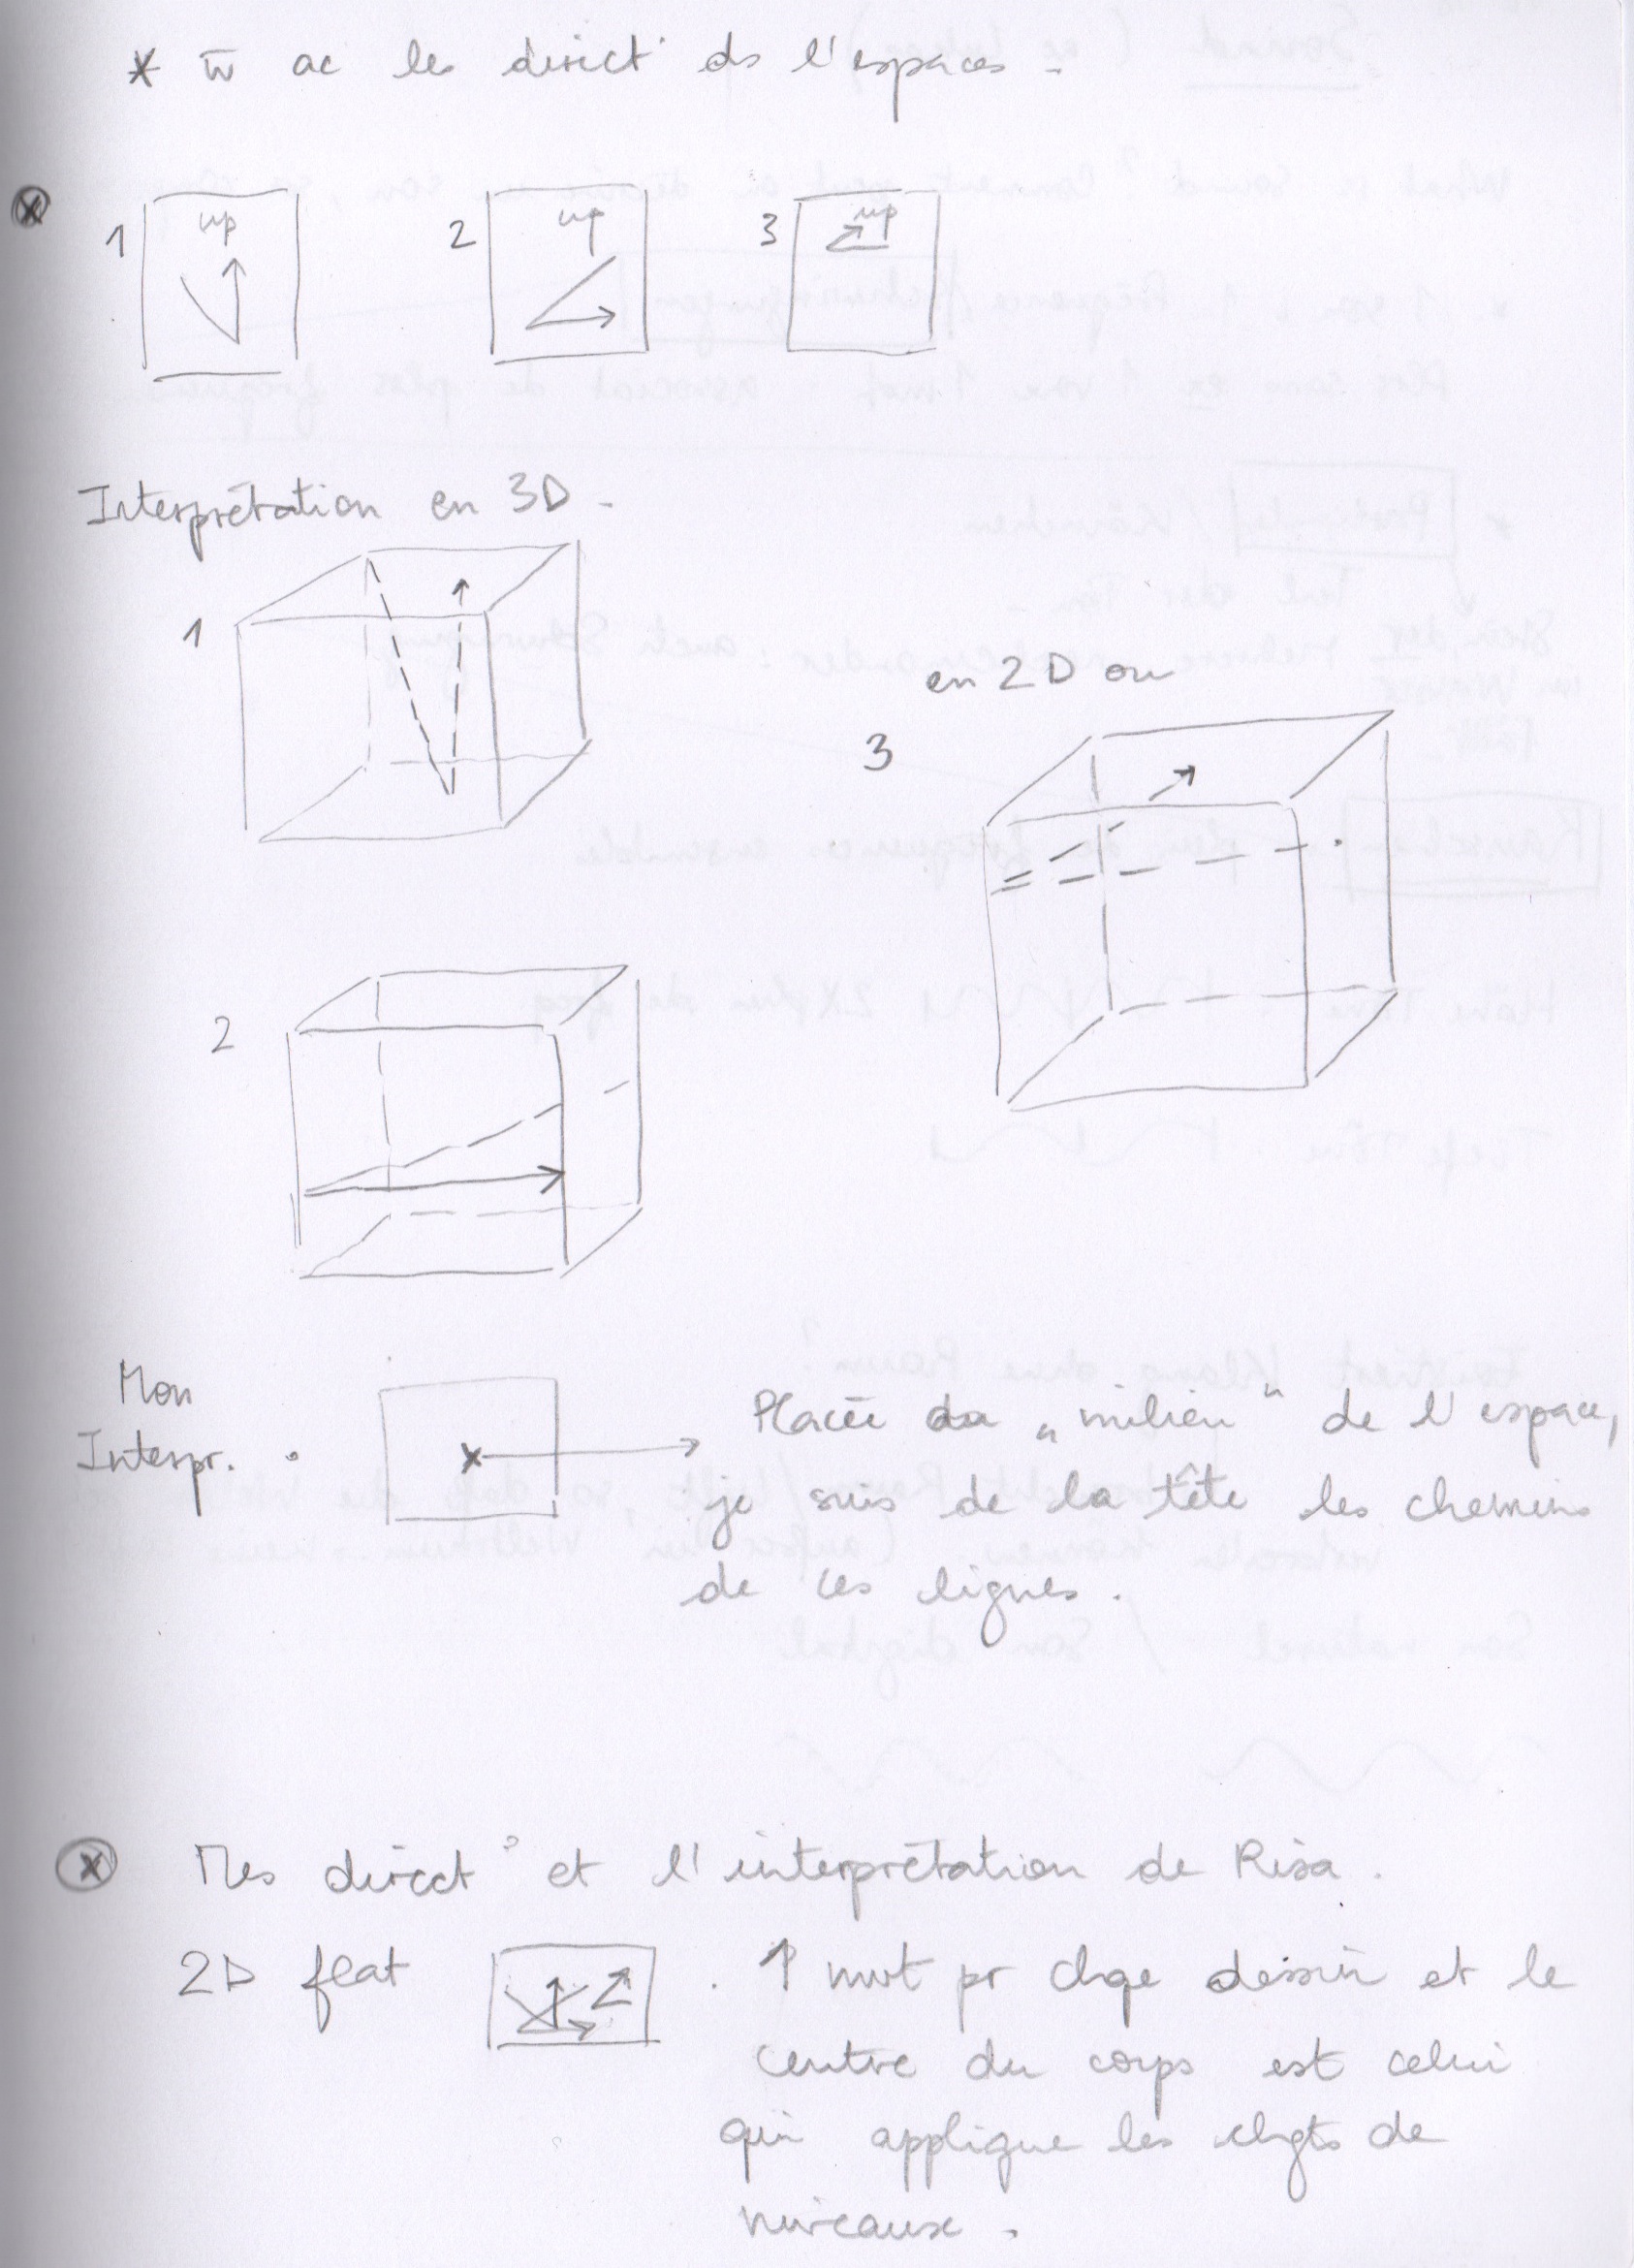 * w̄ ac les direct° ds l'espaces -
1 up 2 up 3 up
Interprétation en 3D -
1
en 2D ou
3
2
Mon
Interpr.
Placée au "milieu" de l'espace,
je suis de la tête les chemins
de ces lignes.
Mes direct° et l'interprétation de Risa.
2D flat
1 mvt pr chqe dessin et le
centre du corps est celui
qui applique les chgts de
niveaux.